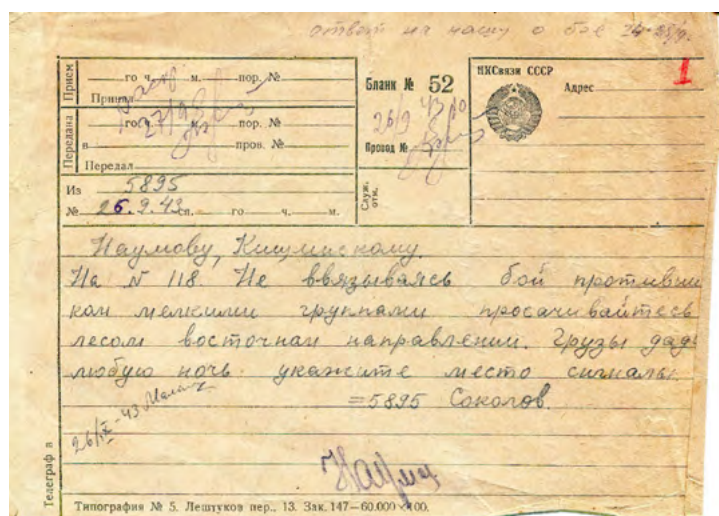 ответ на нашу о бое 24-25/9.
Прием
го ч. м. пор. №
Принял
27/9
Передана
го ч. м. пор. №
в пров. №
Передал
Из 5895
№ 26.9.43 сл. го ч. м.
Бланк № 52
26/9 43
Провод №
Служ. отм.
НКСвязи СССР
Адрес
1
Наумову, Кищинскому.
На N 118. Не ввязываясь бой противни
ком мелкими группами просачивайтесь
лесом восточнам направлении. Грузы дад
любую ночь укажите место сигналы.
=5895 Соколов.
26/IX-43
Телеграф в
Типография № 5. Лештуков пер., 13. Зак. 147—60.000×100.